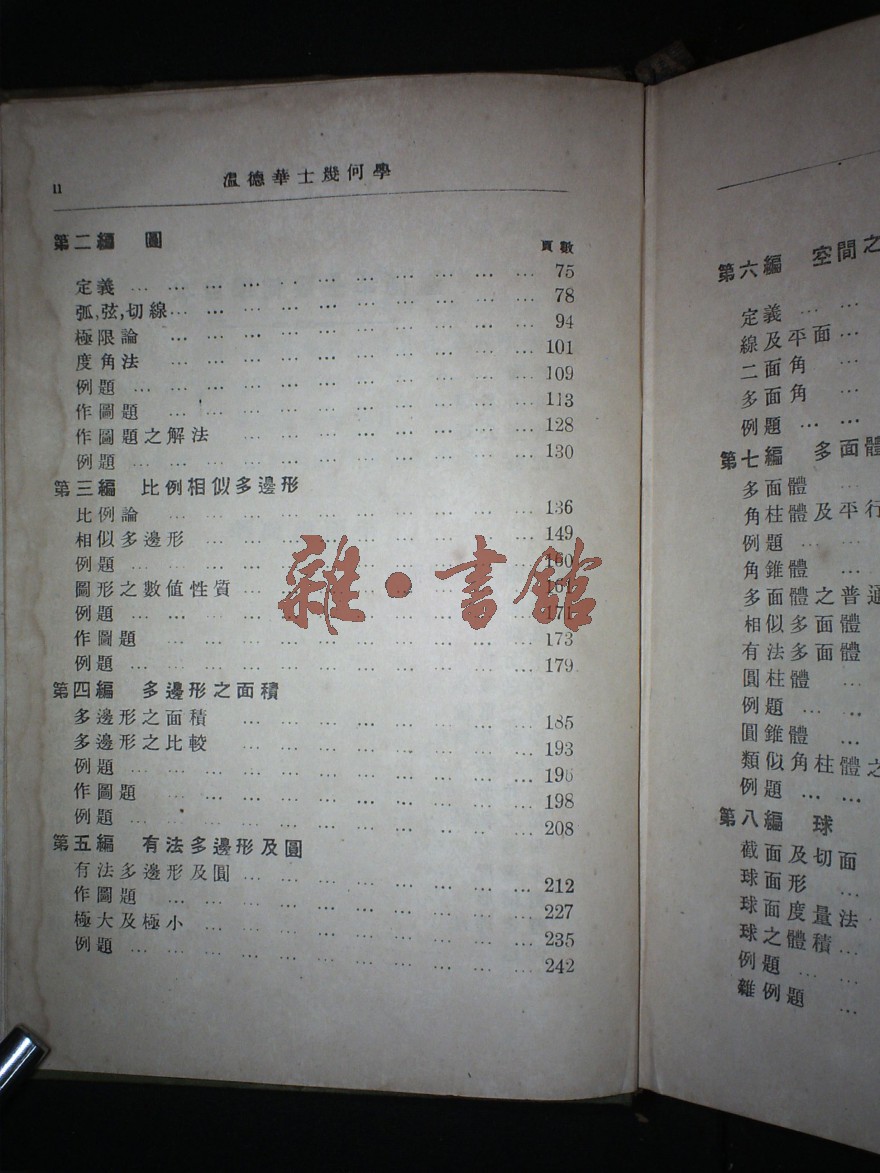 11 溫德華士幾何學
第二編 圓 頁數
定義 … … … … … … … … … … 75
弧,弦,切線… … … … … … … … … 78
極限論 … … … … … … … … … 94
度角法 … … … … … … … … … 101
例題 … … … … … … … … … … 109
作圖題 … … … … … … … … … 113
作圖題之解法 … … … … … … … 128
例題 … … … … … … … … … … 130
第三編 比例相似多邊形
比例論 … … … … … … … … … 136
相似多邊形 … … … … … … … … 149
例題 … … … … … … … … … … 160
圖形之數值性質 … … … … … … … 161
例題 … … … … … … … … … … 171
作圖題 … … … … … … … … … 173
例題 … … … … … … … … … … 179
第四編 多邊形之面積
多邊形之面積 … … … … … … … 185
多邊形之比較 … … … … … … … 193
例題 … … … … … … … … … … 196
作圖題 … … … … … … … … … 198
例題 … … … … … … … … … … 208
第五編 有法多邊形及圓
有法多邊形及圓 … … … … … … … 212
作圖題 … … … … … … … … … 227
極大及極小 … … … … … … … … 235
例題 … … … … … … … … … … 242
雜·書館
第六編 空間之
定義 … …
線及平面 …
二面角 …
多面角 …
例題 … …
第七編 多面體
多面體 …
角柱體及平行
例題 …
角錐體 …
多面體之普通
相似多面體
有法多面體
圓柱體 …
例題 … …
圓錐體 …
類似角柱體之
例題 … …
第八編 球
截面及切面
球面形 …
球面度量法
球之體積 …
例題 … …
雜例題 …